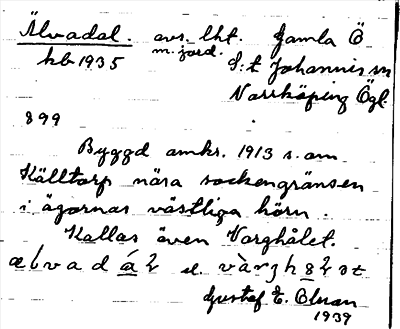 Älvadal. avs. lht. Gamla Ö
hb 1935 m. jord. S:t Johannis sn
Norrköping Ögl.
899
Byggd omkr. 1913 s. om
Källtorp nära sockengränsen
i ägornas västliga hörn.
Kallas även Varghålet.
Gustaf E. Olsson
1939